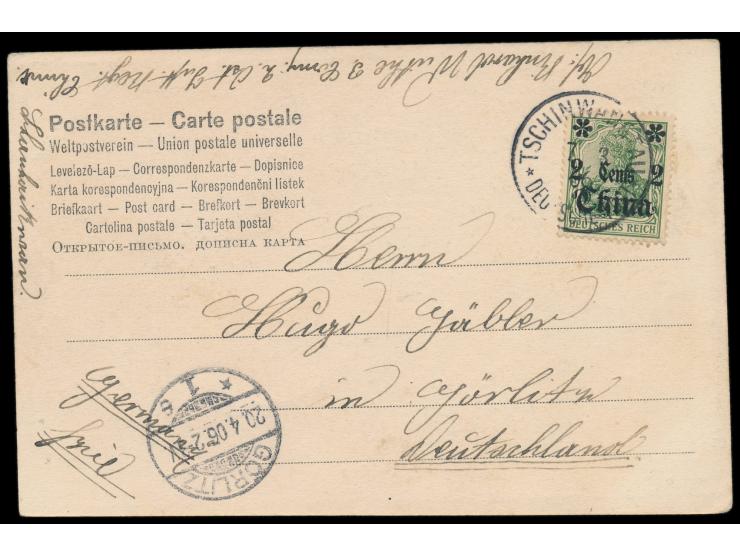 Postkarte — Carte postale
Weltpostverein — Union postale universelle
Levelező-Lap — Correspondenzkarte — Dopisnice
Karta korespondencyjna — Korespondenční listek
Briefkaart — Post card — Brefkort — Brevkort
Cartolina postale — Tarjeta postal
Открытое-письмо. дописна карта
TSCHINWAN
DEU
2 Cents 2
China
DEUTSCHES REICH
Herrn
Hugo Gäbler
in Görlitz
Deutschland.
Germany
GÖRLITZ
20.4.06
1